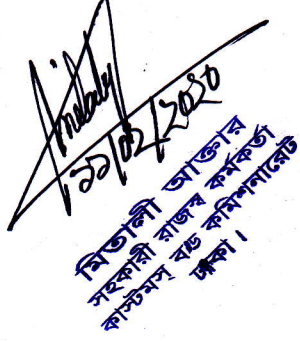 ২২/০২/২০২০
মিতালী আক্তার
সহকারী রাজস্ব কর্মকর্তা
কাস্টমস্ বন্ড কমিশনারেট
ঢাকা।